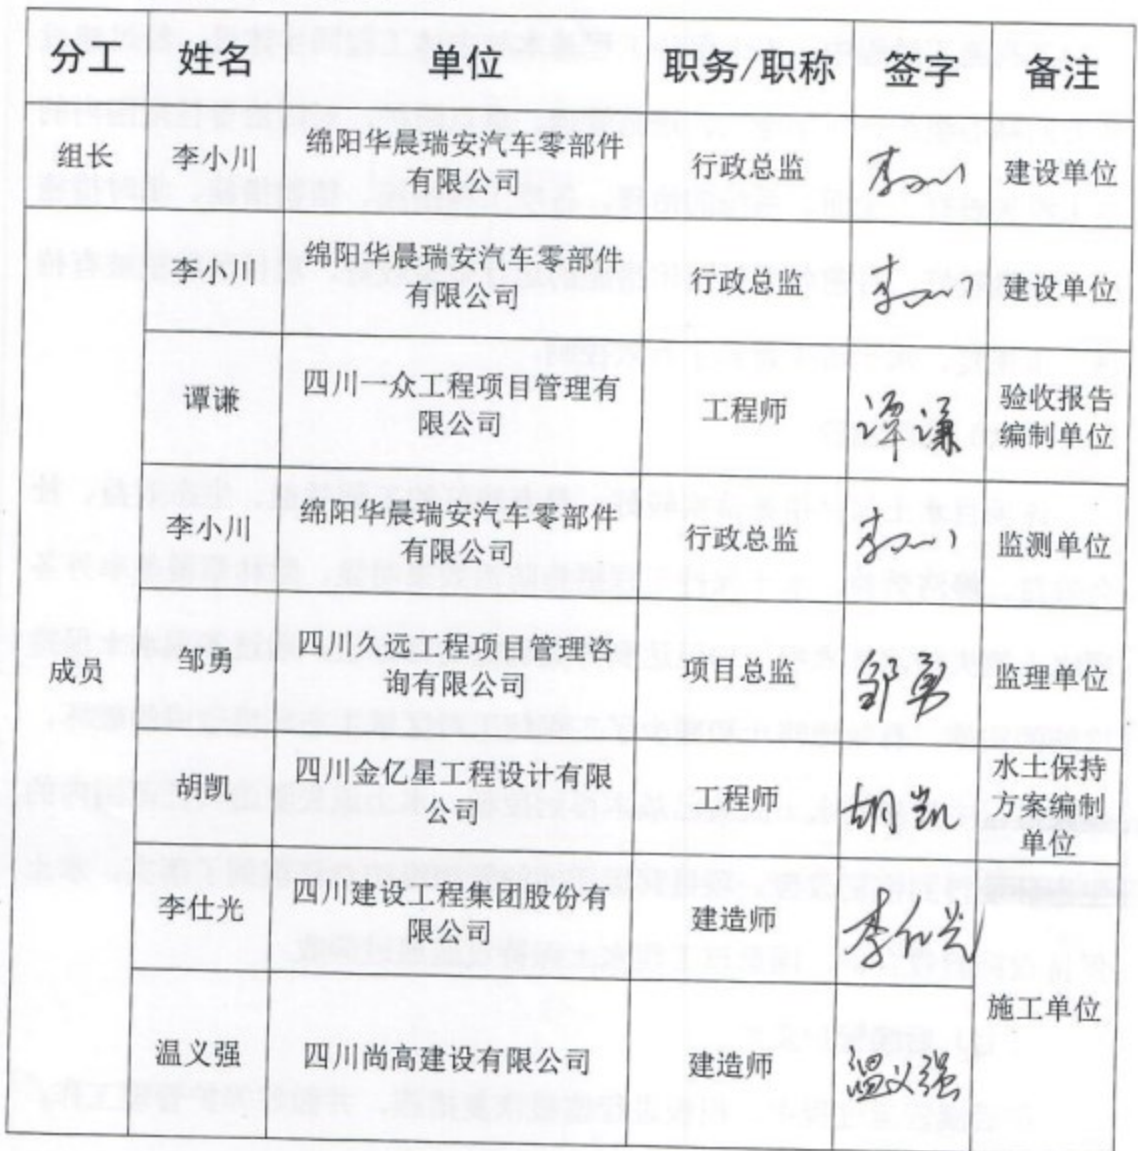 分工 姓名 单位 职务/职称 签字 备注
组长 李小川 绵阳华晨瑞安汽车零部件
有限公司 行政总监 李小川 建设单位
成员
李小川 绵阳华晨瑞安汽车零部件
有限公司 行政总监 李小川 建设单位
谭谦 四川一众工程项目管理有
限公司 工程师 谭谦 验收报告
编制单位
李小川 绵阳华晨瑞安汽车零部件
有限公司 行政总监 李小川 监测单位
邹勇 四川久远工程项目管理咨
询有限公司 项目总监 邹勇 监理单位
胡凯 四川金亿星工程设计有限
公司 工程师 胡凯 水土保持
方案编制
单位
李仕光 四川建设工程集团股份有
限公司 建造师 李仕光
施工单位
温义强 四川尚高建设有限公司 建造师 温义强